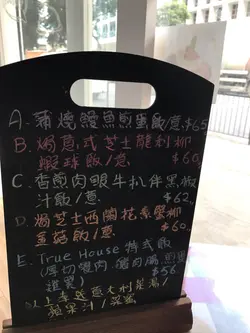 A. 蒲燒鰻魚煎蛋飯/意 $65
B. 焗意式芝士龍利柳
蝦球飯/意 $60
C. 香煎肉眼牛扒伴黑椒
汁飯/意 $62
D. 焗芝士西蘭花素蟹柳
金菇飯/意 $60
E. True House 特式飯
(厚切蟹肉
選買) $56
以上套送意大利菜湯/
蘋果汁/